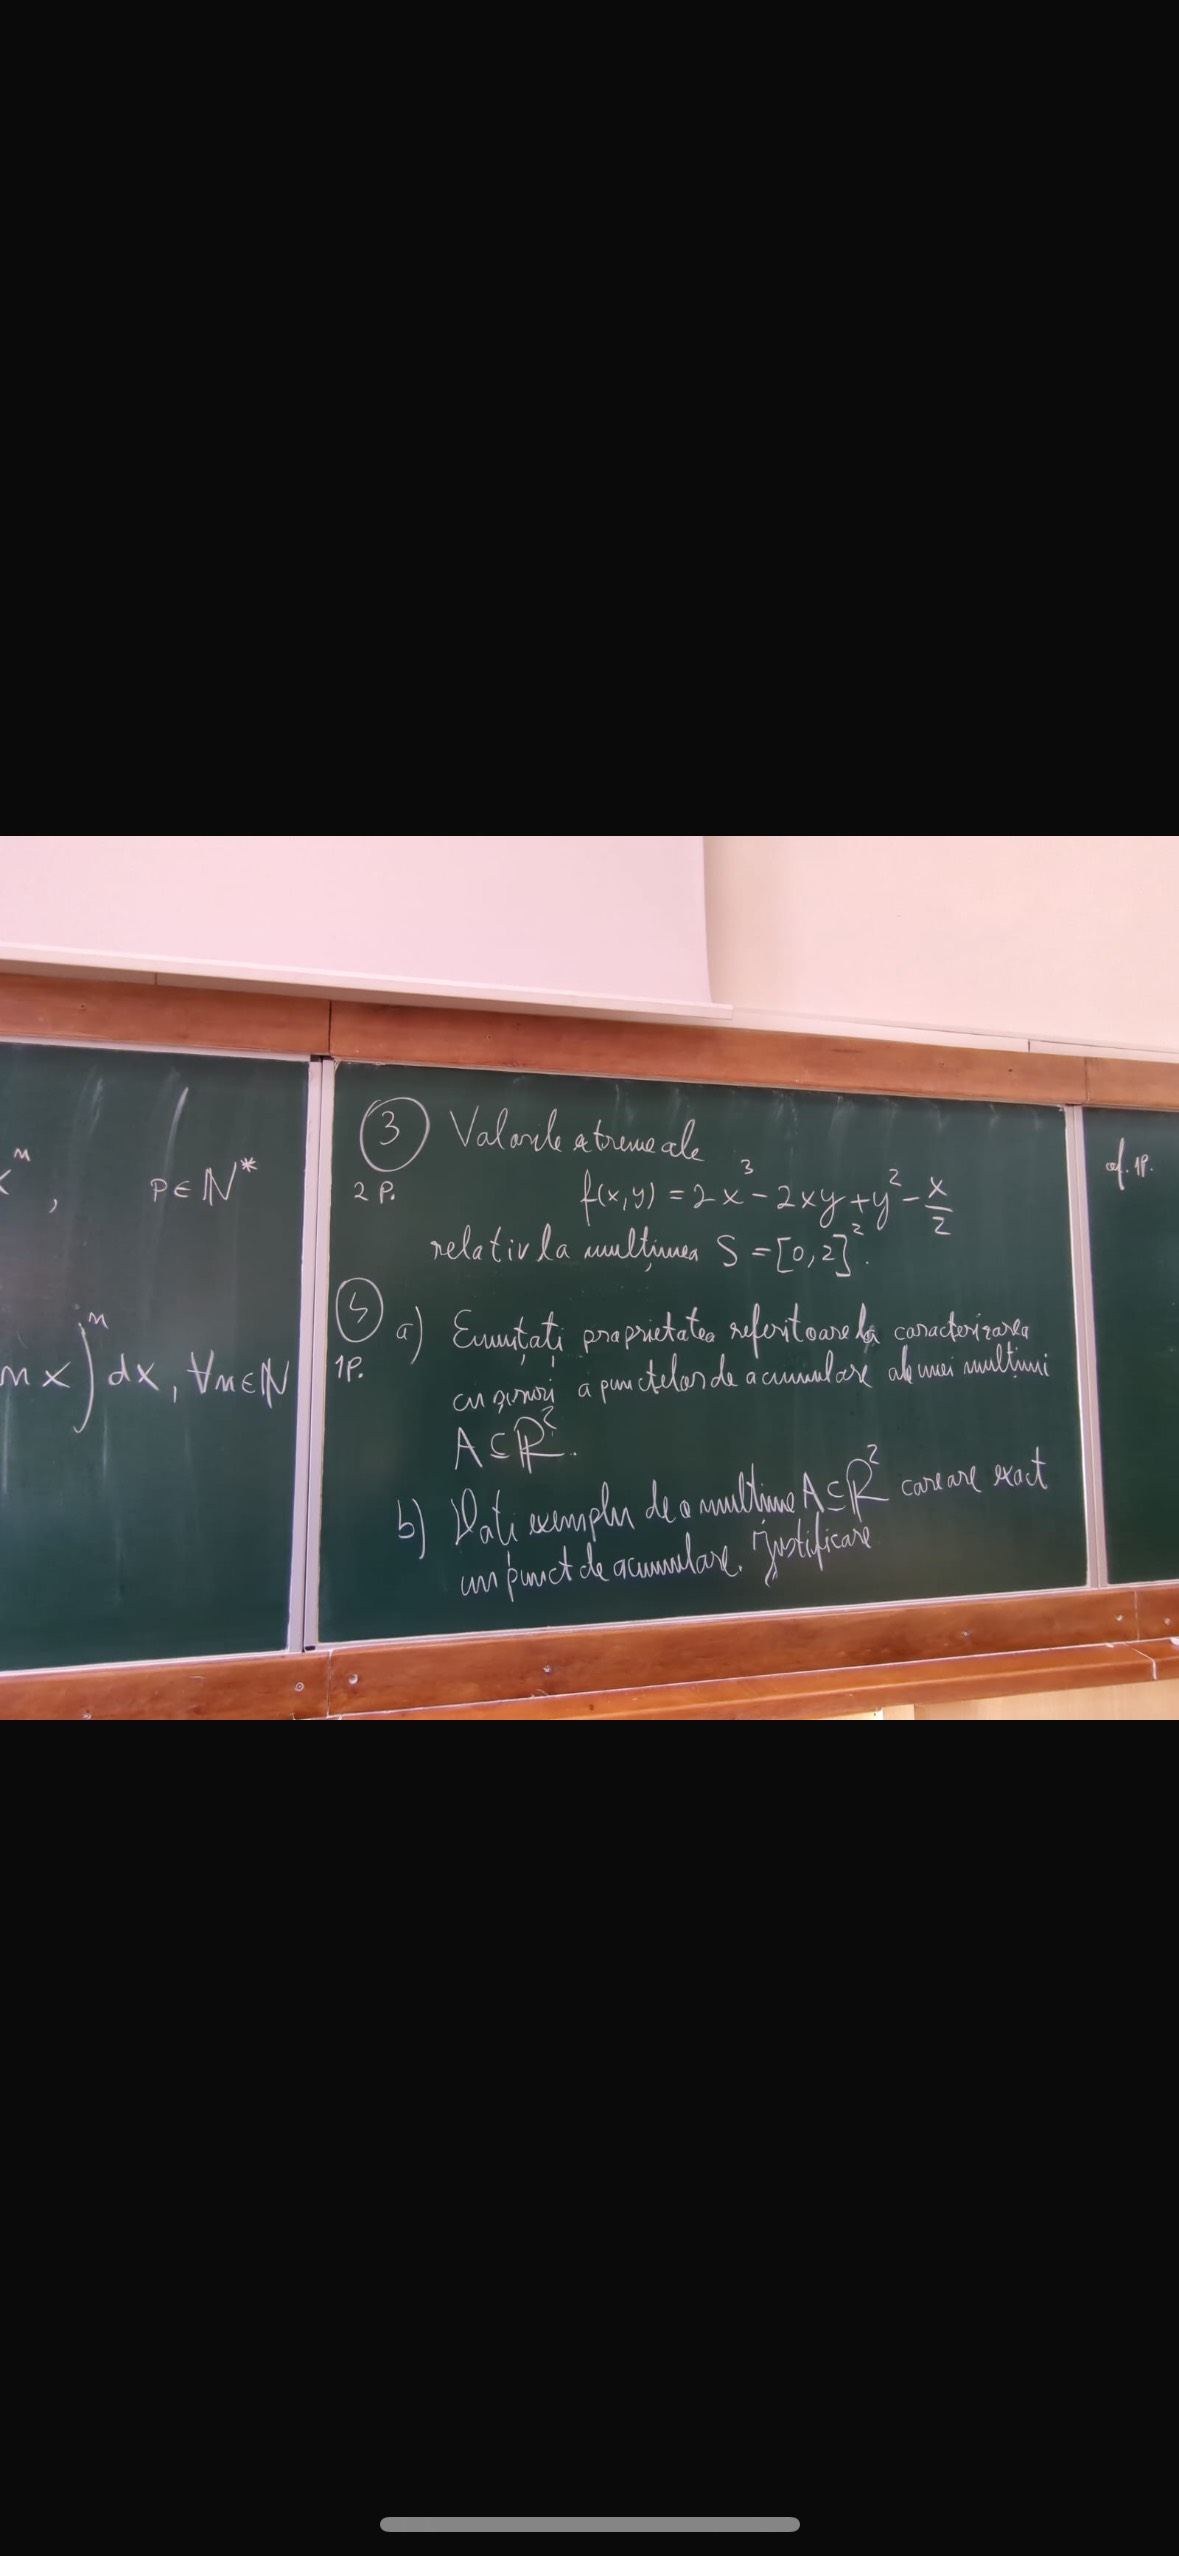 n
x , p∈ℕ*
n
nx) dx, ∀n∈ℕ
③ Valorile extreme ale
2 P. f(x,y) = 2x³ - 2xy + y² - x/2
relativ la mulțimea S = [0,2]².
④ a) Enunțați proprietatea referitoare la caracterizarea
1P. cu șiruri a punctelor de acumulare ale unei mulțimi
A ⊆ ℝ².
b) Dați exemplu de o mulțime A ⊆ ℝ² care are exact
un punct de acumulare. Justificare
of. 1P.